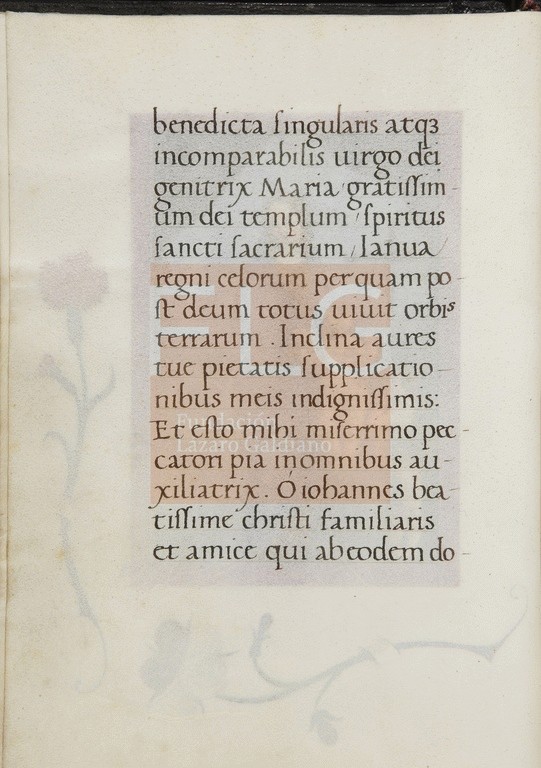 benedicta ſingularis atqꝫ
incomparabilis uirgo dei
genitrix Maria gratiſſim-
um dei templum / ſpiritus
ſancti ſacrarium / Ianua
regni celorum per quam po
ſt deum totus uiuit orbis
terrarum . Inclina aures
tue pietatis ſupplicatio-
nibus meis indigniſſimis:
Et eſto mihi miſerrimo pec-
catori pia inomnibus au-
xiliatrix. O iohannes bea-
tiſſime chriſti familiaris
et amice qui abeodem do-
FLG
Fundación
Lázaro Galdiano